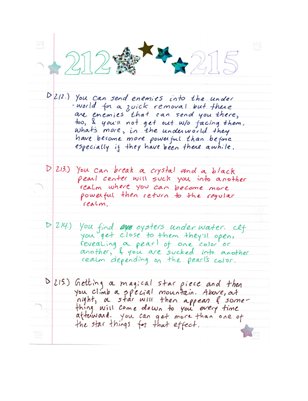 212 215
212.) You can send enemies into the under
world for a quick removal but there
are enemies that can send you there,
too, & you'd not get out w/o facing them.
Whats more, in the underworld they
have become more powerful than before
especially if they have been there awhile.
213.) You can break a crystal and a black
pearl center will suck you into another
realm where you can become more
powerful then return to the regular
realm.
214.) You find oysters underwater. If
you get close to them they'll open,
revealing a pearl of one color or
another, & you are sucked into another
realm depending on the pearl's color.
215.) Getting a magical star piece and then
you climb a special mountain. Above, at
night, a star will then appear & some-
thing will come down to you every time
afterward. you can get more than one of
the star things for that effect.